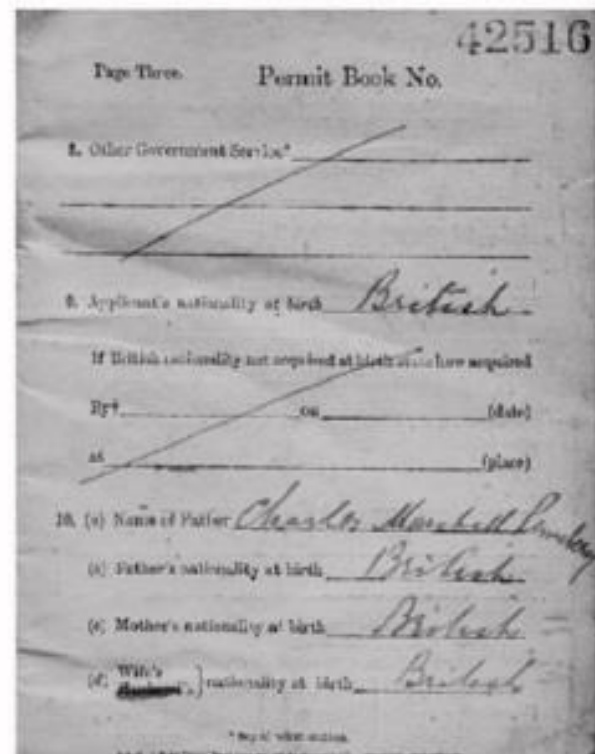 42516
Page Three. Permit Book No.
8. Other Government Service*
9. Applicant's nationality at birth British
If British nationality not acquired at birth state how acquired
By† on (date)
at (place)
10. (a) Name of Father Charles Marshall
(b) Father's nationality at birth British
(c) Mother's nationality at birth British
(d) Wife's } nationality at birth British
* Say of what nation.